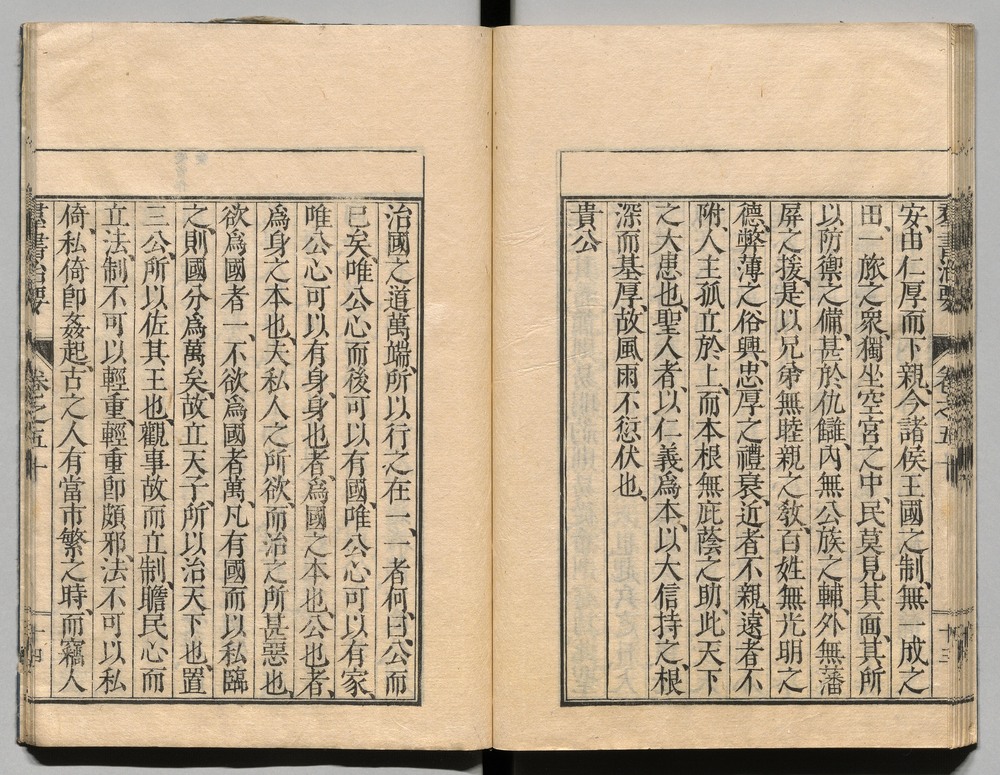 羣書治要 卷之五十 十三
安、由仁厚而下親、今諸侯王國之制、無一成之
田、一旅之衆、獨坐空宮之中、民莫見其面、其所
以防禦之備、甚於仇讎、內無公族之輔、外無藩
屏之援、是以兄弟無睦親之敎、百姓無光明之
德、弊薄之俗興、忠厚之禮衰、近者不親、遠者不
附、人主孤立於上、而本根無庇蔭之助、此天下
之大患也、聖人者、以仁義爲本、以大信持之、根
深而基厚、故風雨不愆伏也、
貴公
治國之道萬端、所以行之在一、一者何、曰、公而
已矣、唯公心而後可以有國、唯公心可以有家、
唯公心可以有身、身也者、爲國之本也、公也者、
爲身之本也、夫私人之所欲、而治之所甚惡也、
欲爲國者一、不欲爲國者萬、凡有國而以私臨
之、則國分爲萬矣、故立天子、所以治天下也、置
三公、所以佐其王也、觀事故而立制、瞻民心而
立法、制不可以輕重、輕重卽頗邪、法不可以私
倚、私倚卽姦起、古之人有當市繁之時、而竊人
羣書治要 卷之五十 十四